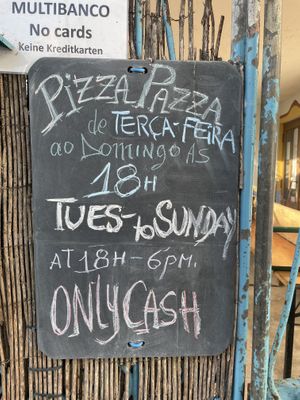 MULTIBANCO
No cards
Keine Kreditkarten
PIZZA PAZZA
de TERÇA-FEIRA
ao DOMINGO AS
18H
TUES-to SUNDAY
AT 18H-6PM.
ONLY CASH